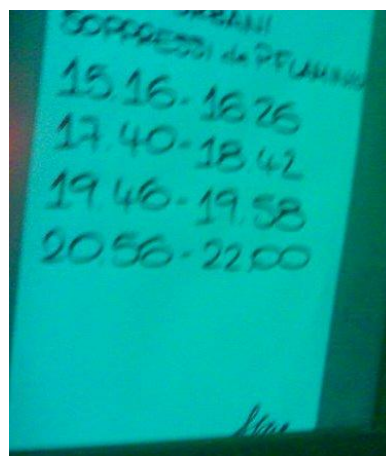 URBANI
SOPPRESSI da P.FLAMINIO
15.16 - 16.26
17.40 - 18.42
19.46 - 19.58
20.56 - 22.00